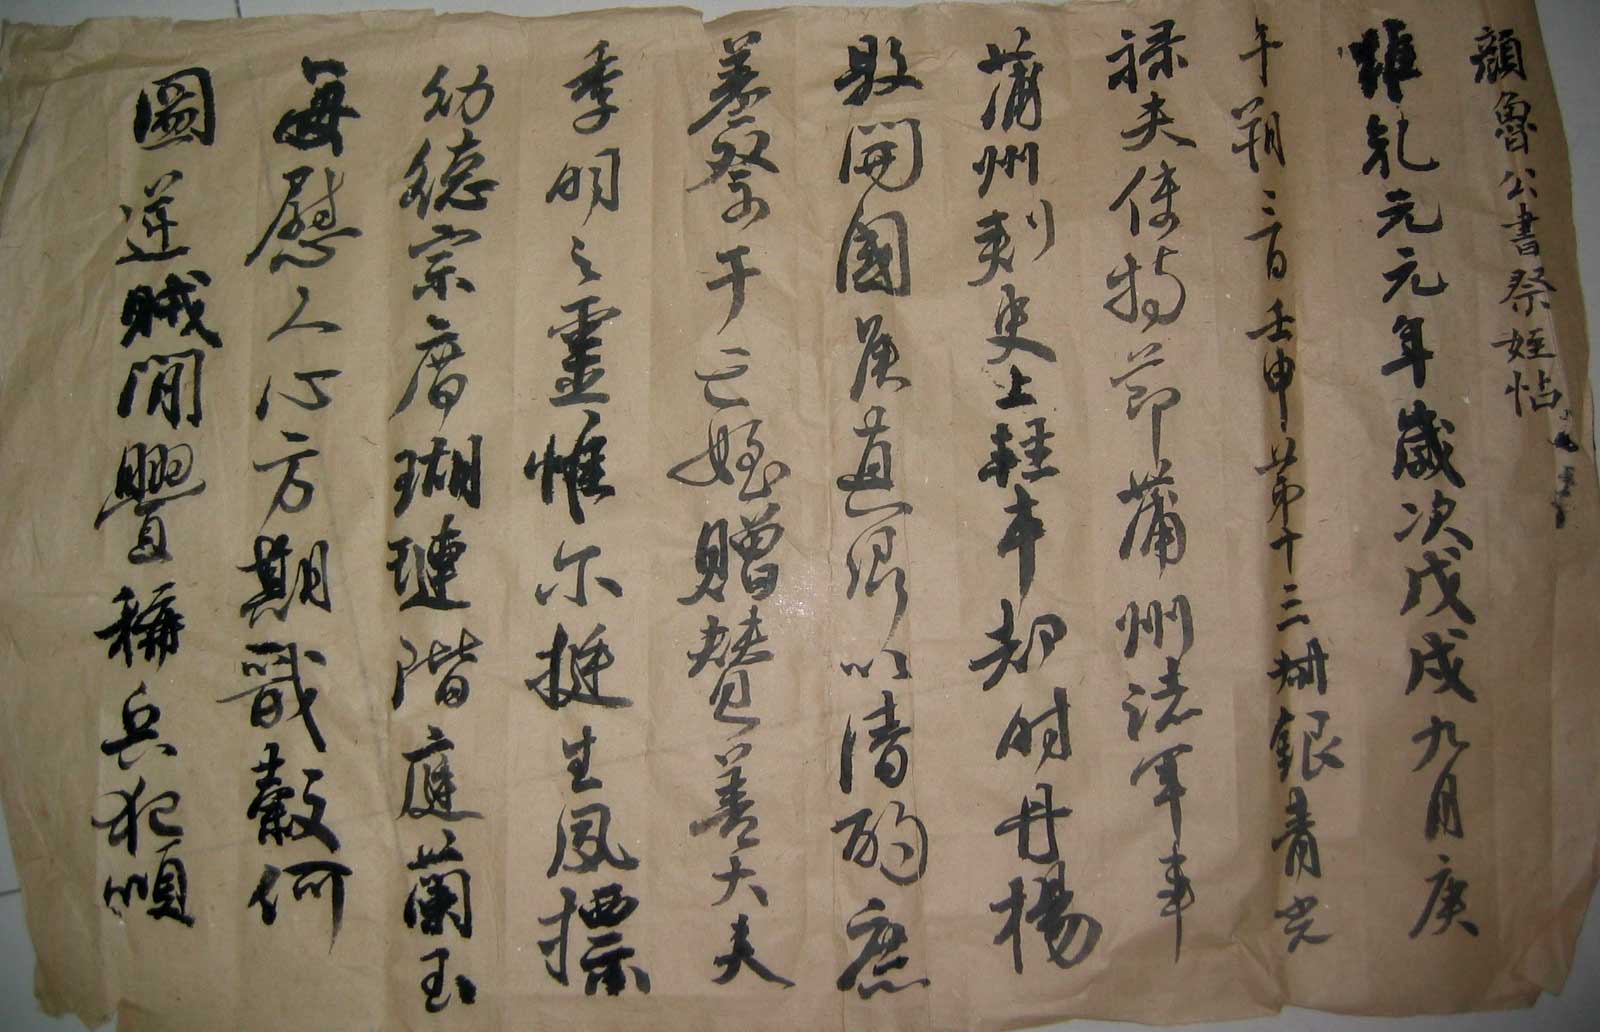 顏魯公書祭姪帖
維乾元元年歲次戊戌九月庚
午朔三日壬申第十三叔銀青光
禄夫使持節蒲州諸軍事
蒲州刺史上輕車都尉丹楊
縣開國侯真卿以清酌庶
羞祭于亡姪贈贊善大夫
季明之靈惟尔挺生夙標
幼德宗廟瑚璉階庭蘭玉
每慰人心方期戩穀何
圖逆賊閒釁稱兵犯順